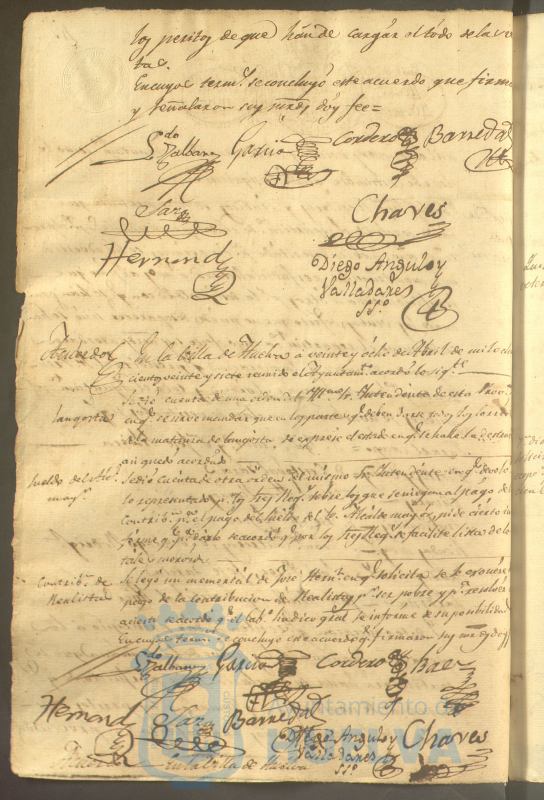 los peritos de que han de cargar el todo de la 
ta.
En cuyos term.s se concluyó este acuerdo que firma
y señalaron sus mrds doy fee=
Galban Garcia Cordero Barreda
Saz Chaves
Hernand Diego Angulo y
Valladares
SS.o
Acuerdo En la Villa de Huelva a veinte y ocho de Abril de mil ocho
cientos veinte y siete reunido el Ayuntam.to acordó lo sig.te
Langosta Se dió cuenta de una orden del Sr. Intendente de esta Prov.a
en q.e se sirve mandar que en los partes q.e deben darse todos los correos
de la matanza de langosta se exprese el estado en q.e se halla la
así quedó acordado
Sueldo del Alc.e Se dió cuenta de otra orden del mismo Sr. Intendente en q.e
may.r lo representado p.r los Reg. sobre los que se niegan al pago de
contrib.n p.a el pago del sueldo del Sr. Alcalde mayor, pide cierto in
forme q.e p.a darlo se acordó q.e por los Reg. se facilite lista de lo
Contrib.n de Se leyó un memorial de José Hern.z en q.e solicita se le exonere
Realistas pago de la contribucion de Realistas p.r ser pobre y p.a resolver
acierto se acordó q.e el Cab.o Sindico gral se informe de su posibilidad
En cuyos term.s se concluyó este acuerdo q.e firmaron sus mrds doy fe
Galban Garcia Cordero Baez
Hernand Saz Barreda Diego Angulo y Chaves
Valladares
SS.o
Ayuntamiento de
HUELVA
Acuerdo En la Villa de Huelva